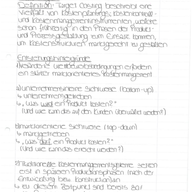 Definition: Target Costing beschreibt eine
Vielzahl von Kostenplanungs-, Kostenkontroll-
und Kostenmanagementinstrumenten, welche
schon (frühzeitig) in den Phasen der Produkt-
und Prozessgestaltung zum Einsatz kommen,
um Kostenstrukturen marktgerecht zu gestalten
Entstehungsgründe
Veränderte Wettbewerbsbedingungen erfordern
ein stärker marktorientiertes Kostenmanagement
unternehmensinterne Sichtweise (bottom-up)
unternehmensgetrieben
„Was wird ein Produkt kosten?"
(Und wie kann das auf den Kunden überwälzt werden?)
Marktorientierte Sichtweise (top-down)
marktgetrieben
„Was darf ein Produkt kosten?"
(Und wie kann das erreicht werden?)
Traditionelle Kostenmanagementsysteme setzen
erst in späteren Produktlebensphasen nach der
Entwicklung bzw. Konstruktion
zu diesem Zeitpunkt sind bereits bis